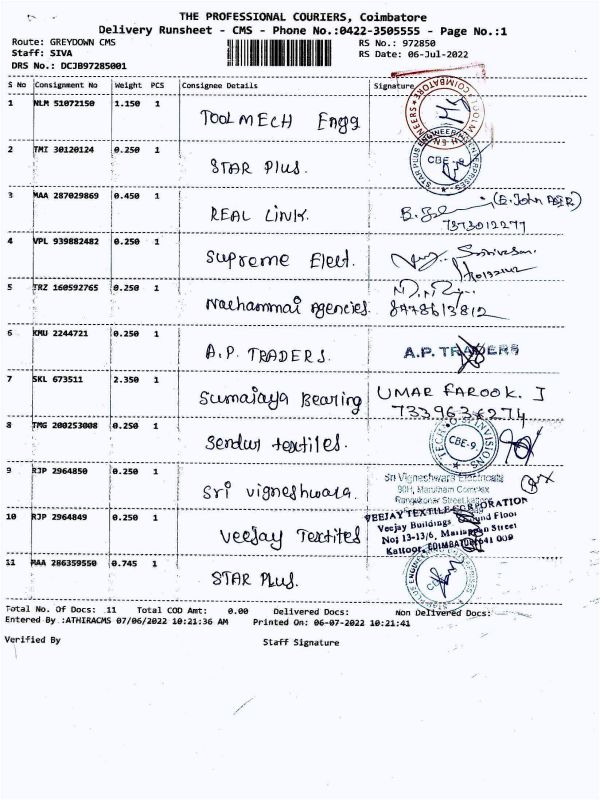 THE PROFESSIONAL COURIERS, Coimbatore
Delivery Runsheet - CMS - Phone No.:0422-3505555 - Page No.:1
Route: GREYDOWN CMS RS No.: 972850
Staff: SIVA RS Date: 06-Jul-2022
DRS No.: DCJB97285001
S No Consignment No Weight PCS Consignee Details Signature
1 NLM 51072150 1.150 1 TOOLMECH Engg
2 TMI 30120124 0.250 1 STAR Plus. CBE
3 MAA 287029869 0.450 1 REAL LINK. (E. John PETER)
7373012277
4 VPL 939882482 0.250 1 Supreme Elect.
5 TRZ 160592765 0.250 1 Nachammai Agencies. 8478613812
6 KMU 2244721 0.250 1 A.P. TRADERS. A.P. TRADERS
7 SKL 673511 2.350 1 Sumaiaya Bearing UMAR FAROOK. I
8 TMG 200253008 0.250 1 Sendur textiles. CBE-9
9 RJP 2964850 0.250 1 Sri vigneshwara. Sri Vigneshwara Electricals
90H, Marutham Complex
10 RJP 2964849 0.250 1 Veejay Textiles VEEJAY TEXTILE CORPORATION
Veejay Buildings Floor
No; 13-13/6, Street
Kattoor, COIMBATORE-641 009
11 MAA 286359550 0.745 1 STAR Plus.
Total No. Of Docs: 11 Total COD Amt: 0.00 Delivered Docs: Non Delivered Docs:
Entered By :ATHIRACMS 07/06/2022 10:21:36 AM Printed On: 06-07-2022 10:21:41
Verified By Staff Signature